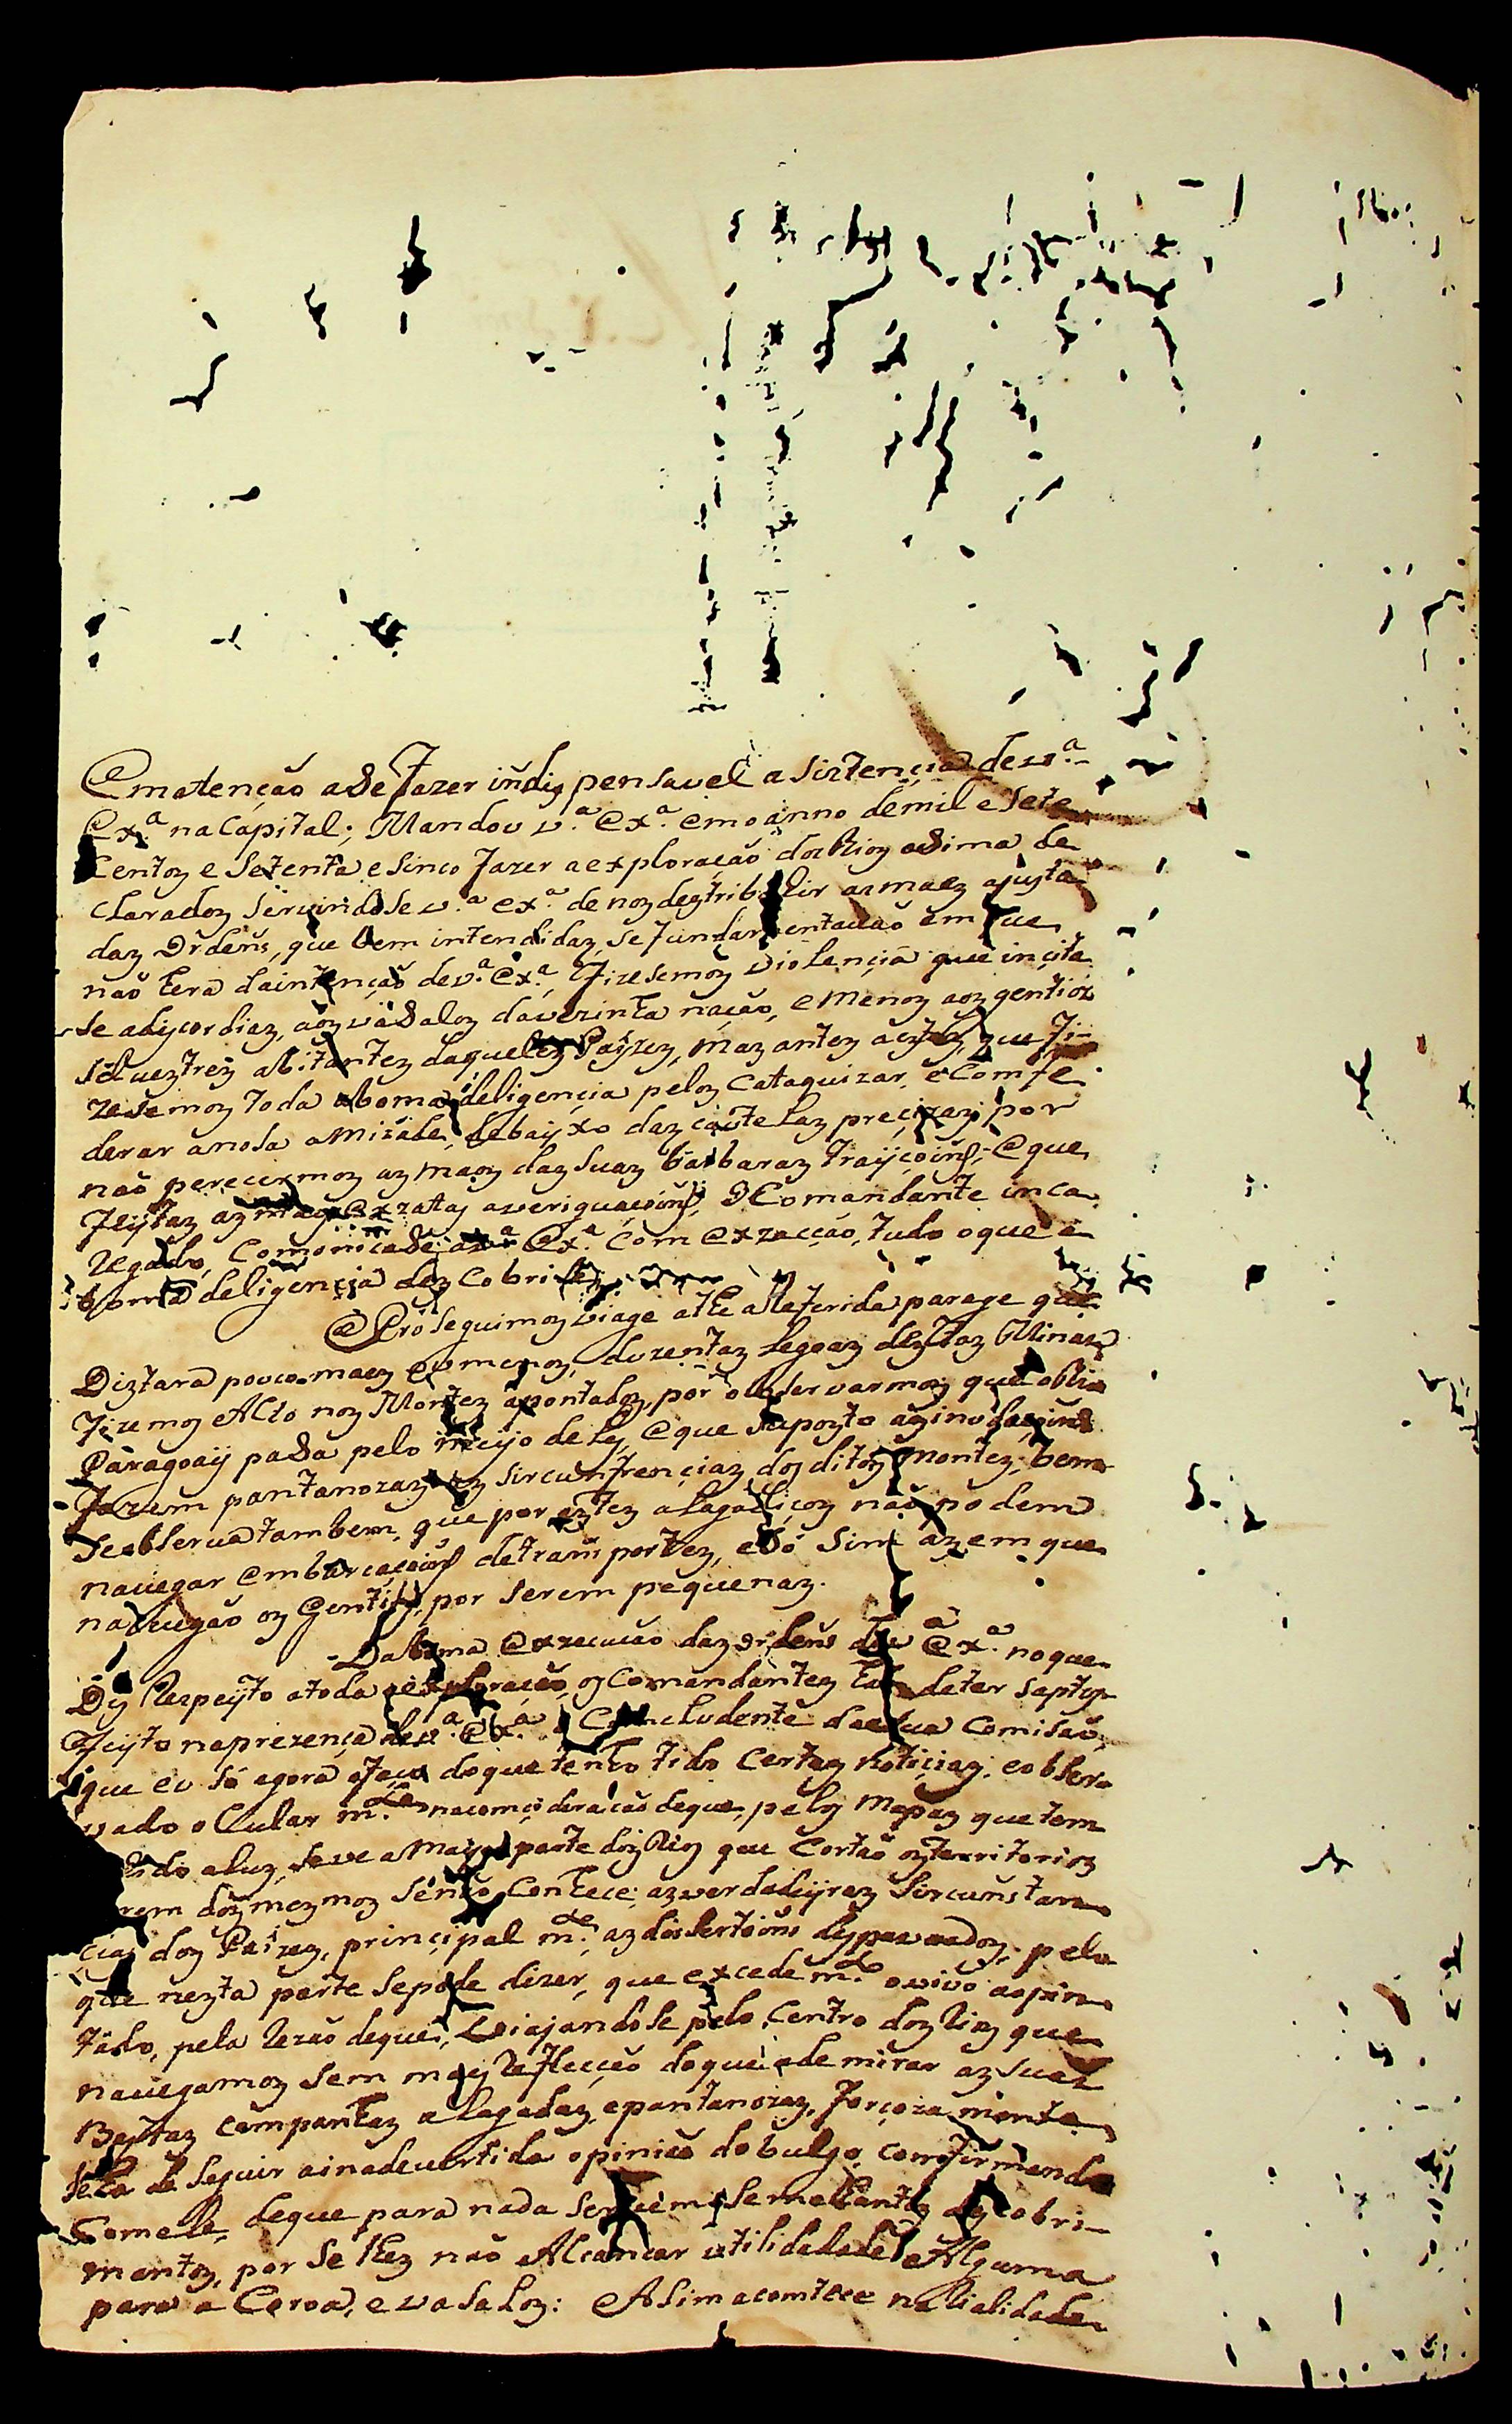 Ematenção aSe fazer indispensavel a Sistençia de v.ª
Ex.ª na Capital; Mandou v.ª Ex.ª emoanno demil e Sete
Centoz e Setenta e Sinco fazer a exploração doz Rioz asima de
Claradoz Servindose v.ª ex.ª de noz destribuir as maez ajusta
daz Ordens, que bem intendidaz, Se fundamentauão em que
não hera da intenção de v.ª Ex.ª, fizesemoz violençia que inçita
Se adiscordiaz, aoz vasaloz da vezinha nação, e menoz aoz gentioz
Silueztrez abitantez daquelez Payzez, maz antez a eztez, que fi-
zesemoz toda aboma deligençia peloz Cataquizar, e Comfe
derar anosa amizade, debayxo daz cautelaz precizaz, por
não perecermoz az maoz daz Suaz barbaraz trayçoins; E que
feytaz az maez Exzataz averiguacoins, O Comandante inca
Regado, Comonicase a v.ª Ex.ª Com Exzacção, tudo o que a
boma deligençia dezCobrise
E Proseguimoz viage athe a Referida parage que
Diztara pouco maez ou menoz, duzentaz Legoaz deztaz Minaz
fizemoz Alto noz Montez apontadoz, por obServarmoz que o Rio
Paragoay pasa pelo meyo delez, E que Supozto az inodaçoins
fazem pantanozaz az Sircunfrençiaz doz ditoz montez; bem
Seobserva tambem, que por eztez alagadiçoz não podem
nauegar Embarcaçoins detransportez, e Só Sim az em que
nauegão oz Gentioz, por Serem pequenaz.
Daboma Exzecucão daz ordens de v.ª Ex.ª no que
Diz Respeyto atoda aexploração, oz Comandantez
feyto naprezença de v.ª Ex.ª Concludente da Sua Comisão,
que eu Só agora o faço doque tenho tido Certaz Notiçiaz, eobser
vado oCular m.te nacomçideracão deque, peloz Mapaz que tem
ido aluz, Seve a Mayor parte doz Rioz que Cortão oz territorioz
rem doz mezmoz Senão Conhece; az verdadeyraz Sircunstan
ciaz doz Paízez, principal m.te az dissertoins pela
que nezta parte Sepode dizer, que excede m.to ovivo ao pin
tado, pela Rezão deque, Viajandose pelo Centro doz Rioz que
nauegamoz Sem maez Reflecção doque ademirar az Suaz
Baztaz Campanhaz alagadaz, epantanozaz, forçoza mente
Seha de Seguir ainadevertida opinião dobulgo, comfirmando
Comele, deque para nada Servem Semelhantez dezcobri-
mentoz, por Se lhez não Alcançar utilidade Alguma
para a Coroa, e vasaloz: ASim acomtece na Rialidade